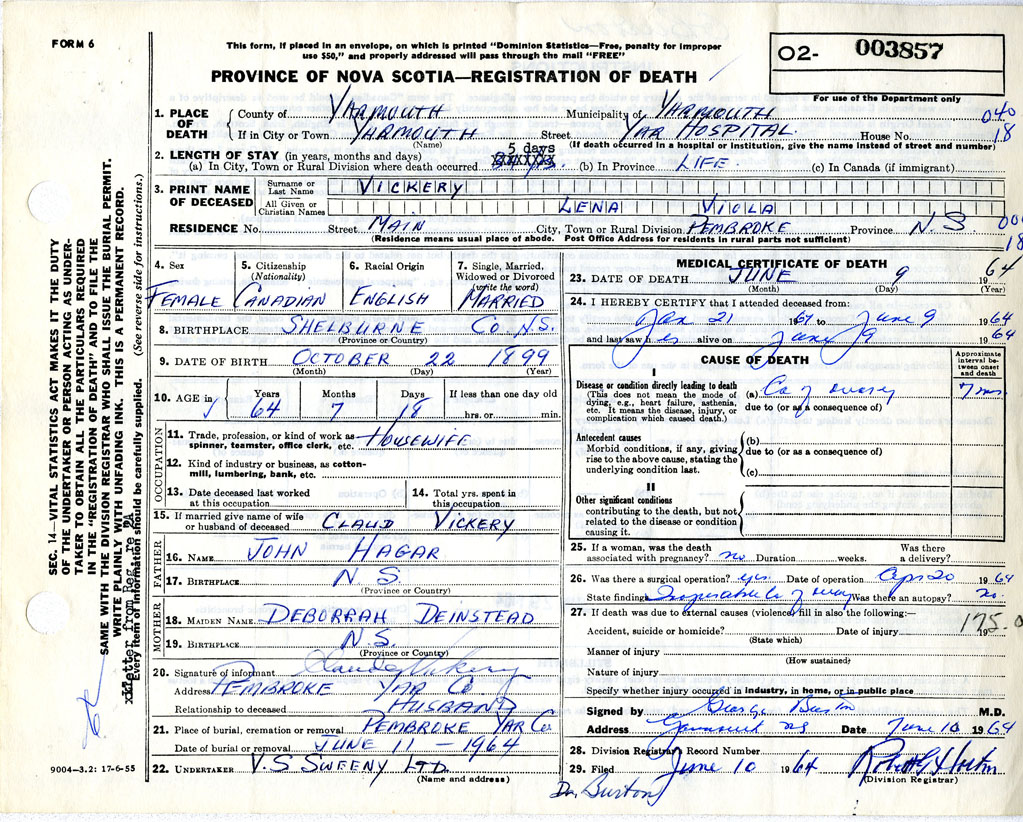 FORM 6
This form, if placed in an envelope, on which is printed "Dominion Statistics—Free, penalty for improper
use $50," and properly addressed will pass through the mail "FREE"
PROVINCE OF NOVA SCOTIA—REGISTRATION OF DEATH
02- 003857
For use of the Department only
1. PLACE OF DEATH
County of YARMOUTH Municipality of YARMOUTH 040
If in City or Town YARMOUTH Street YAR HOSPITAL House No. 18
(Name) (If death occurred in a hospital or institution, give the name instead of street and number)
2. LENGTH OF STAY (in years, months and days)
5 days
(a) In City, Town or Rural Division where death occurred (b) In Province LIFE (c) In Canada (if immigrant)
3. PRINT NAME OF DECEASED
Surname or Last Name VICKERY
All Given or Christian Names LENA VIOLA
RESIDENCE No. Street MAIN City, Town or Rural Division PEMBROKE Province N.S. 00
(Residence means usual place of abode. Post Office Address for residents in rural parts not sufficient) 18
4. Sex 5. Citizenship (Nationality) 6. Racial Origin 7. Single, Married, Widowed or Divorced (write the word)
FEMALE CANADIAN ENGLISH MARRIED
8. BIRTHPLACE SHELBURNE CO N.S.
(Province or Country)
9. DATE OF BIRTH OCTOBER 22 1899
(Month) (Day) (Year)
10. AGE in Years Months Days If less than one day old
64 7 18 hrs. or min.
OCCUPATION
11. Trade, profession, or kind of work as HOUSEWIFE
spinner, teamster, office clerk, etc.
12. Kind of industry or business, as cotton-
mill, lumbering, bank, etc.
13. Date deceased last worked at this occupation
14. Total yrs. spent in this occupation
15. If married give name of wife
or husband of deceased CLAUD VICKERY
FATHER
16. NAME JOHN HAGAR
17. BIRTHPLACE N S
(Province or Country)
MOTHER
18. MAIDEN NAME DEBORRAH DEINSTEAD
19. BIRTHPLACE N.S.
(Province or Country)
20. Signature of informant Claude Vickery
Address PEMBROKE YAR CO
Relationship to deceased HUSBAND
21. Place of burial, cremation or removal PEMBROKE YAR CO.
Date of burial or removal JUNE 11 - 1964
22. UNDERTAKER V.S SWEENY LTD.
(Name and address)
MEDICAL CERTIFICATE OF DEATH
23. DATE OF DEATH JUNE 9 64
(Month) (Day) (Year)
24. I HEREBY CERTIFY that I attended deceased from:
Jan 21 to June 9 1964
and last saw her alive on June 9 1964
CAUSE OF DEATH
Approximate interval between onset and death
I
Disease or condition directly leading to death (a) Ca of ovary 7 mos.
(This does not mean the mode of due to (or as a consequence of)
dying, e.g., heart failure, asthenia,
etc. It means the disease, injury, or
complication which caused death.)
Antecedent causes (b)
Morbid conditions, if any, giving due to (or as a consequence of)
rise to the above cause, stating the
underlying condition last. (c)
II
Other significant conditions
contributing to the death, but not
related to the disease or condition
causing it.
25. If a woman, was the death Was there
associated with pregnancy? no Duration weeks. a delivery?
26. Was there a surgical operation? yes Date of operation Apr 20 1964
State findings Inoperable Ca of ovary Was there an autopsy? no
27. If death was due to external causes (violence) fill in also the following:—
Accident, suicide or homicide? Date of injury 19 175.0
(State which)
Manner of injury
(How sustained)
Nature of injury
Specify whether injury occurred in industry, in home, or in public place
Signed by George Burton M.D.
Address Yarmouth NS Date June 10 1964
28. Division Registrar's Record Number
29. Filed June 10 1964
(Division Registrar)
Dr. Burton
SEC. 14—VITAL STATISTICS ACT MAKES IT THE DUTY
OF THE UNDERTAKER OR PERSON ACTING AS UNDER-
TAKER TO OBTAIN ALL THE PARTICULARS REQUIRED
IN THE "REGISTRATION OF DEATH" AND TO FILE THE
SAME WITH THE DIVISION REGISTRAR WHO SHALL ISSUE THE BURIAL PERMIT.
WRITE PLAINLY WITH UNFADING INK. THIS IS A PERMANENT RECORD.
Every item of information should be carefully supplied. (See reverse side for instructions.)
9004—3.2: 17-6-55